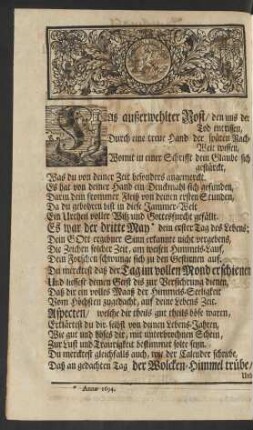 außerwehlter Rost / den uns der
Tod entrissen,
Durch eine treue Hand der späten Nach-
Welt wissen,
Womit in einer Schrifft dein Glaube sich
gestärckt,
Was du von deiner Zeit besonders angemerckt.
Es hat von deiner Hand ein Druckmahl sich gefunden,
Darin dein frommer Fleiß von deinen ersten Stunden,
Da du gebohren bist in diese Jammer-Welt
Ein Urtheil voller Witz und Gottesfurcht gefällt.
Es war der dritte May * dein erster Tag des Lebens;
Dein GOtt ergebner Sinn erkannte nicht vergebens,
Die Zeichen solcher Zeit, am weissen Himmels-Lauf,
Dein Forschen schwung sich zu den Gestirnen auf.
Du mercktest daß der Tag im vollen Mond erschienen
Und liessest deinen Geist dis zur Versichrung dienen,
Daß dir ein volles Maaß der Himmels-Seeligkeit
Vom Höchsten zugedacht, auf deine Lebens Zeit.
Aspecten / welche die theils gut theils böse waren,
Erklärtest du dir selbst von deinen Lebens-Jahren,
Wie gut und böses dir, mit unterbrochnen Schein,
Zur Lust und Traurigkeit bestimmet solte seyn.
Du mercktest gleichfalls auch, wie der Calender schreibe,
Daß an gedachten Tag der Wolcken-Himmel trübe /
Und
* Anno 1694.